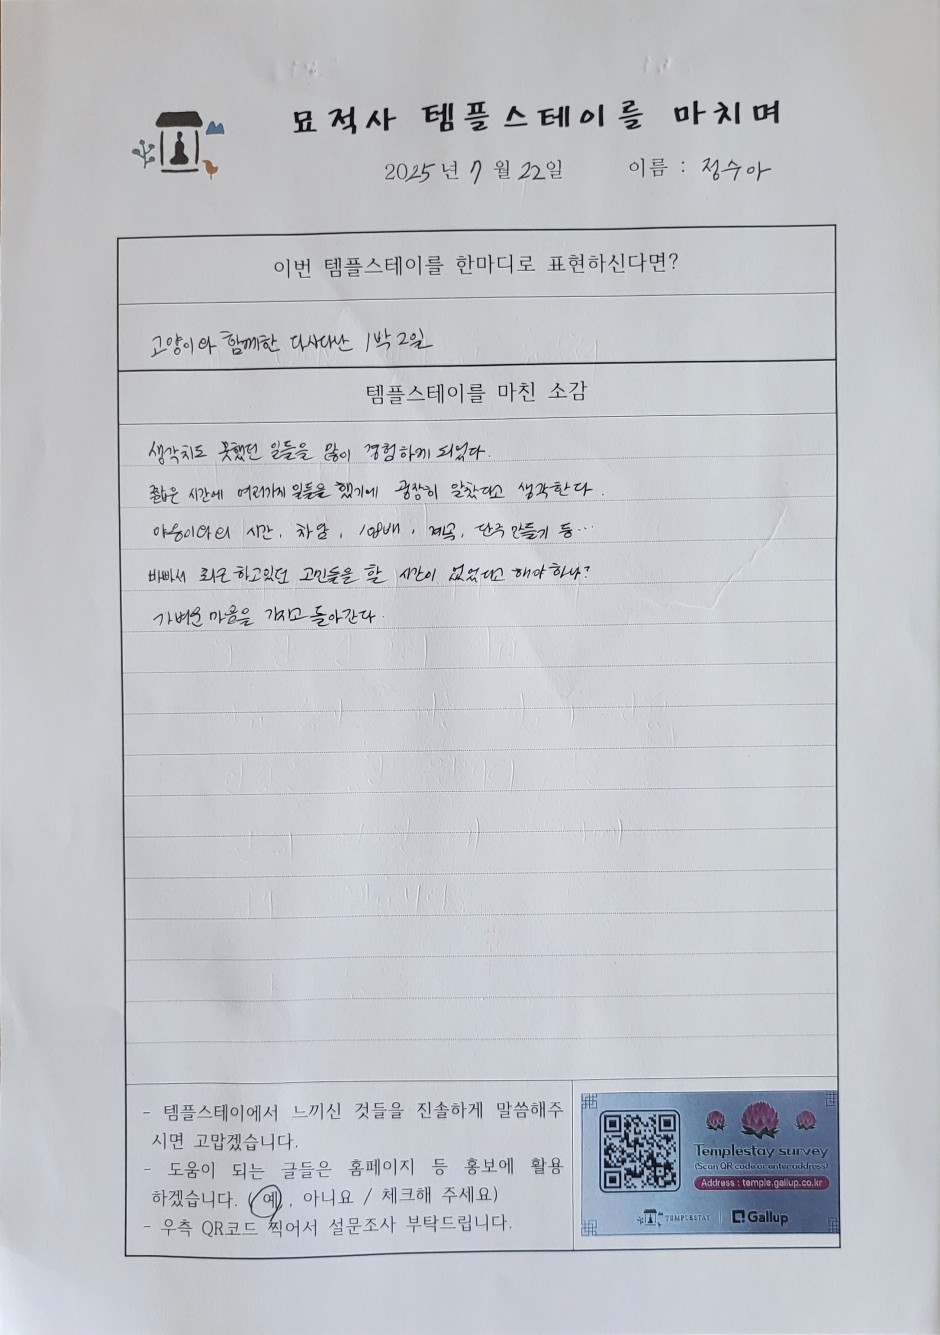 묘적사 템플스테이를 마치며
2025년 7월 22일 이름 : 정수아
이번 템플스테이를 한마디로 표현하신다면?
고양이와 함께한 다사다난 1박2일
템플스테이를 마친 소감
생각치도 못했던 일들을 많이 경험하게 되었다.
짧은 시간에 여러가지 일들을 했기에 굉장히 알찼다고 생각한다.
야옹이와의 시간, 차담, 108배, 계곡, 단주 만들기 등...
바빠서 최근 하고있던 고민들을 할 시간이 없었다고 해야 하나?
가벼운 마음을 가지고 돌아간다.
- 템플스테이에서 느끼신 것들을 진솔하게 말씀해주
시면 고맙겠습니다.
- 도움이 되는 글들은 홈페이지 등 홍보에 활용
하겠습니다. (예, 아니요 / 체크해 주세요)
- 우측 QR코드 찍어서 설문조사 부탁드립니다.
Templestay survey
(Scan QR code or enter address)
Address : temple.gallup.co.kr
TEMPLESTAY Gallup